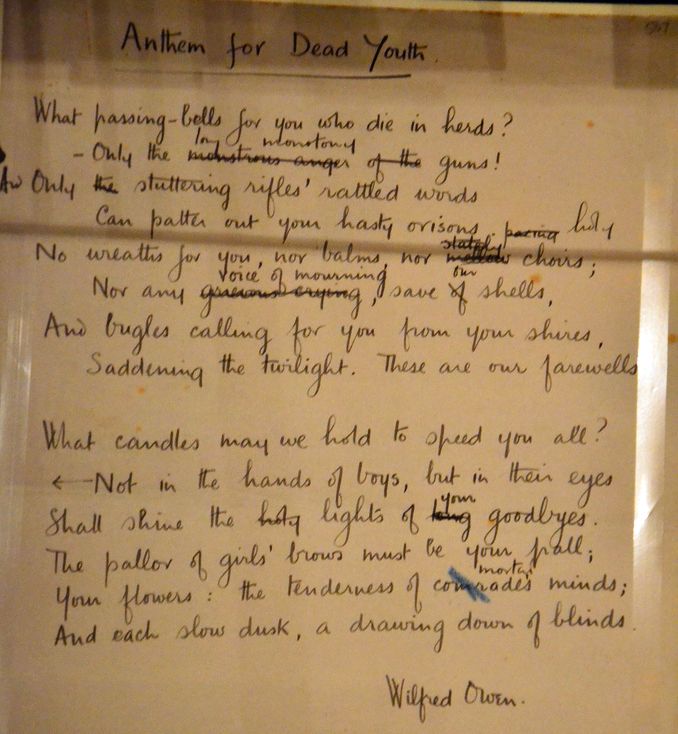 Anthem for Dead Youth.
What passing-bells for you who die in herds?
long monotony
- Only the monstrous anger of the guns!
And Only the stuttering rifles' rattled words
Can patter out your hasty orisons.
pacing holy
stately
No wreaths for you, nor balms, nor mellow choirs;
voice of mourning our
Nor any grievous crying, save of shells,
And bugles calling for you from your shires,
Saddening the twilight. These are our farewells
What candles may we hold to speed you all?
←Not in the hands of boys, but in their eyes
your
Shall shine the holy lights of long goodbyes.
The pallor of girls' brows must be your pall;
mortal
Your flowers: the tenderness of comrades minds;
And each slow dusk, a drawing down of blinds.
Wilfred Owen.